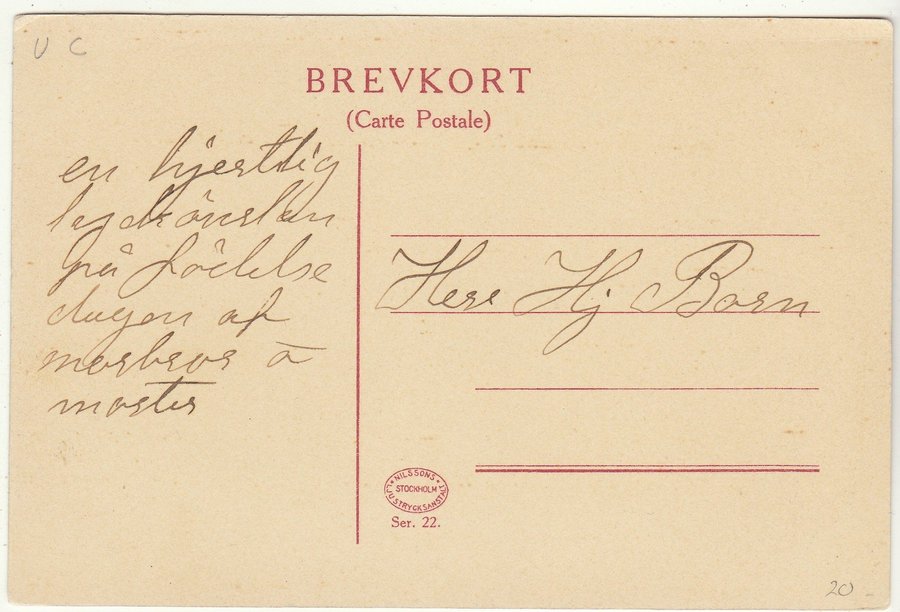 U C
BREVKORT
(Carte Postale)
en hjerttlig
lyckönskan
på födelse
dagen af
morbror o
moster
Herr Hj Born
NILSSONS
STOCKHOLM
LJUSTRYCKSANSTALT
Ser. 22.
20